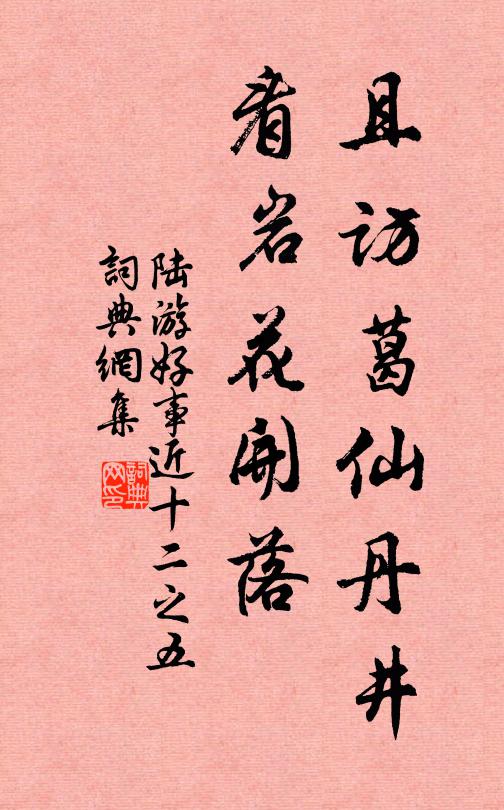 且访葛仙丹井
看岩花開落
陆游好事近十二之五
詞典網集
詞典
网印